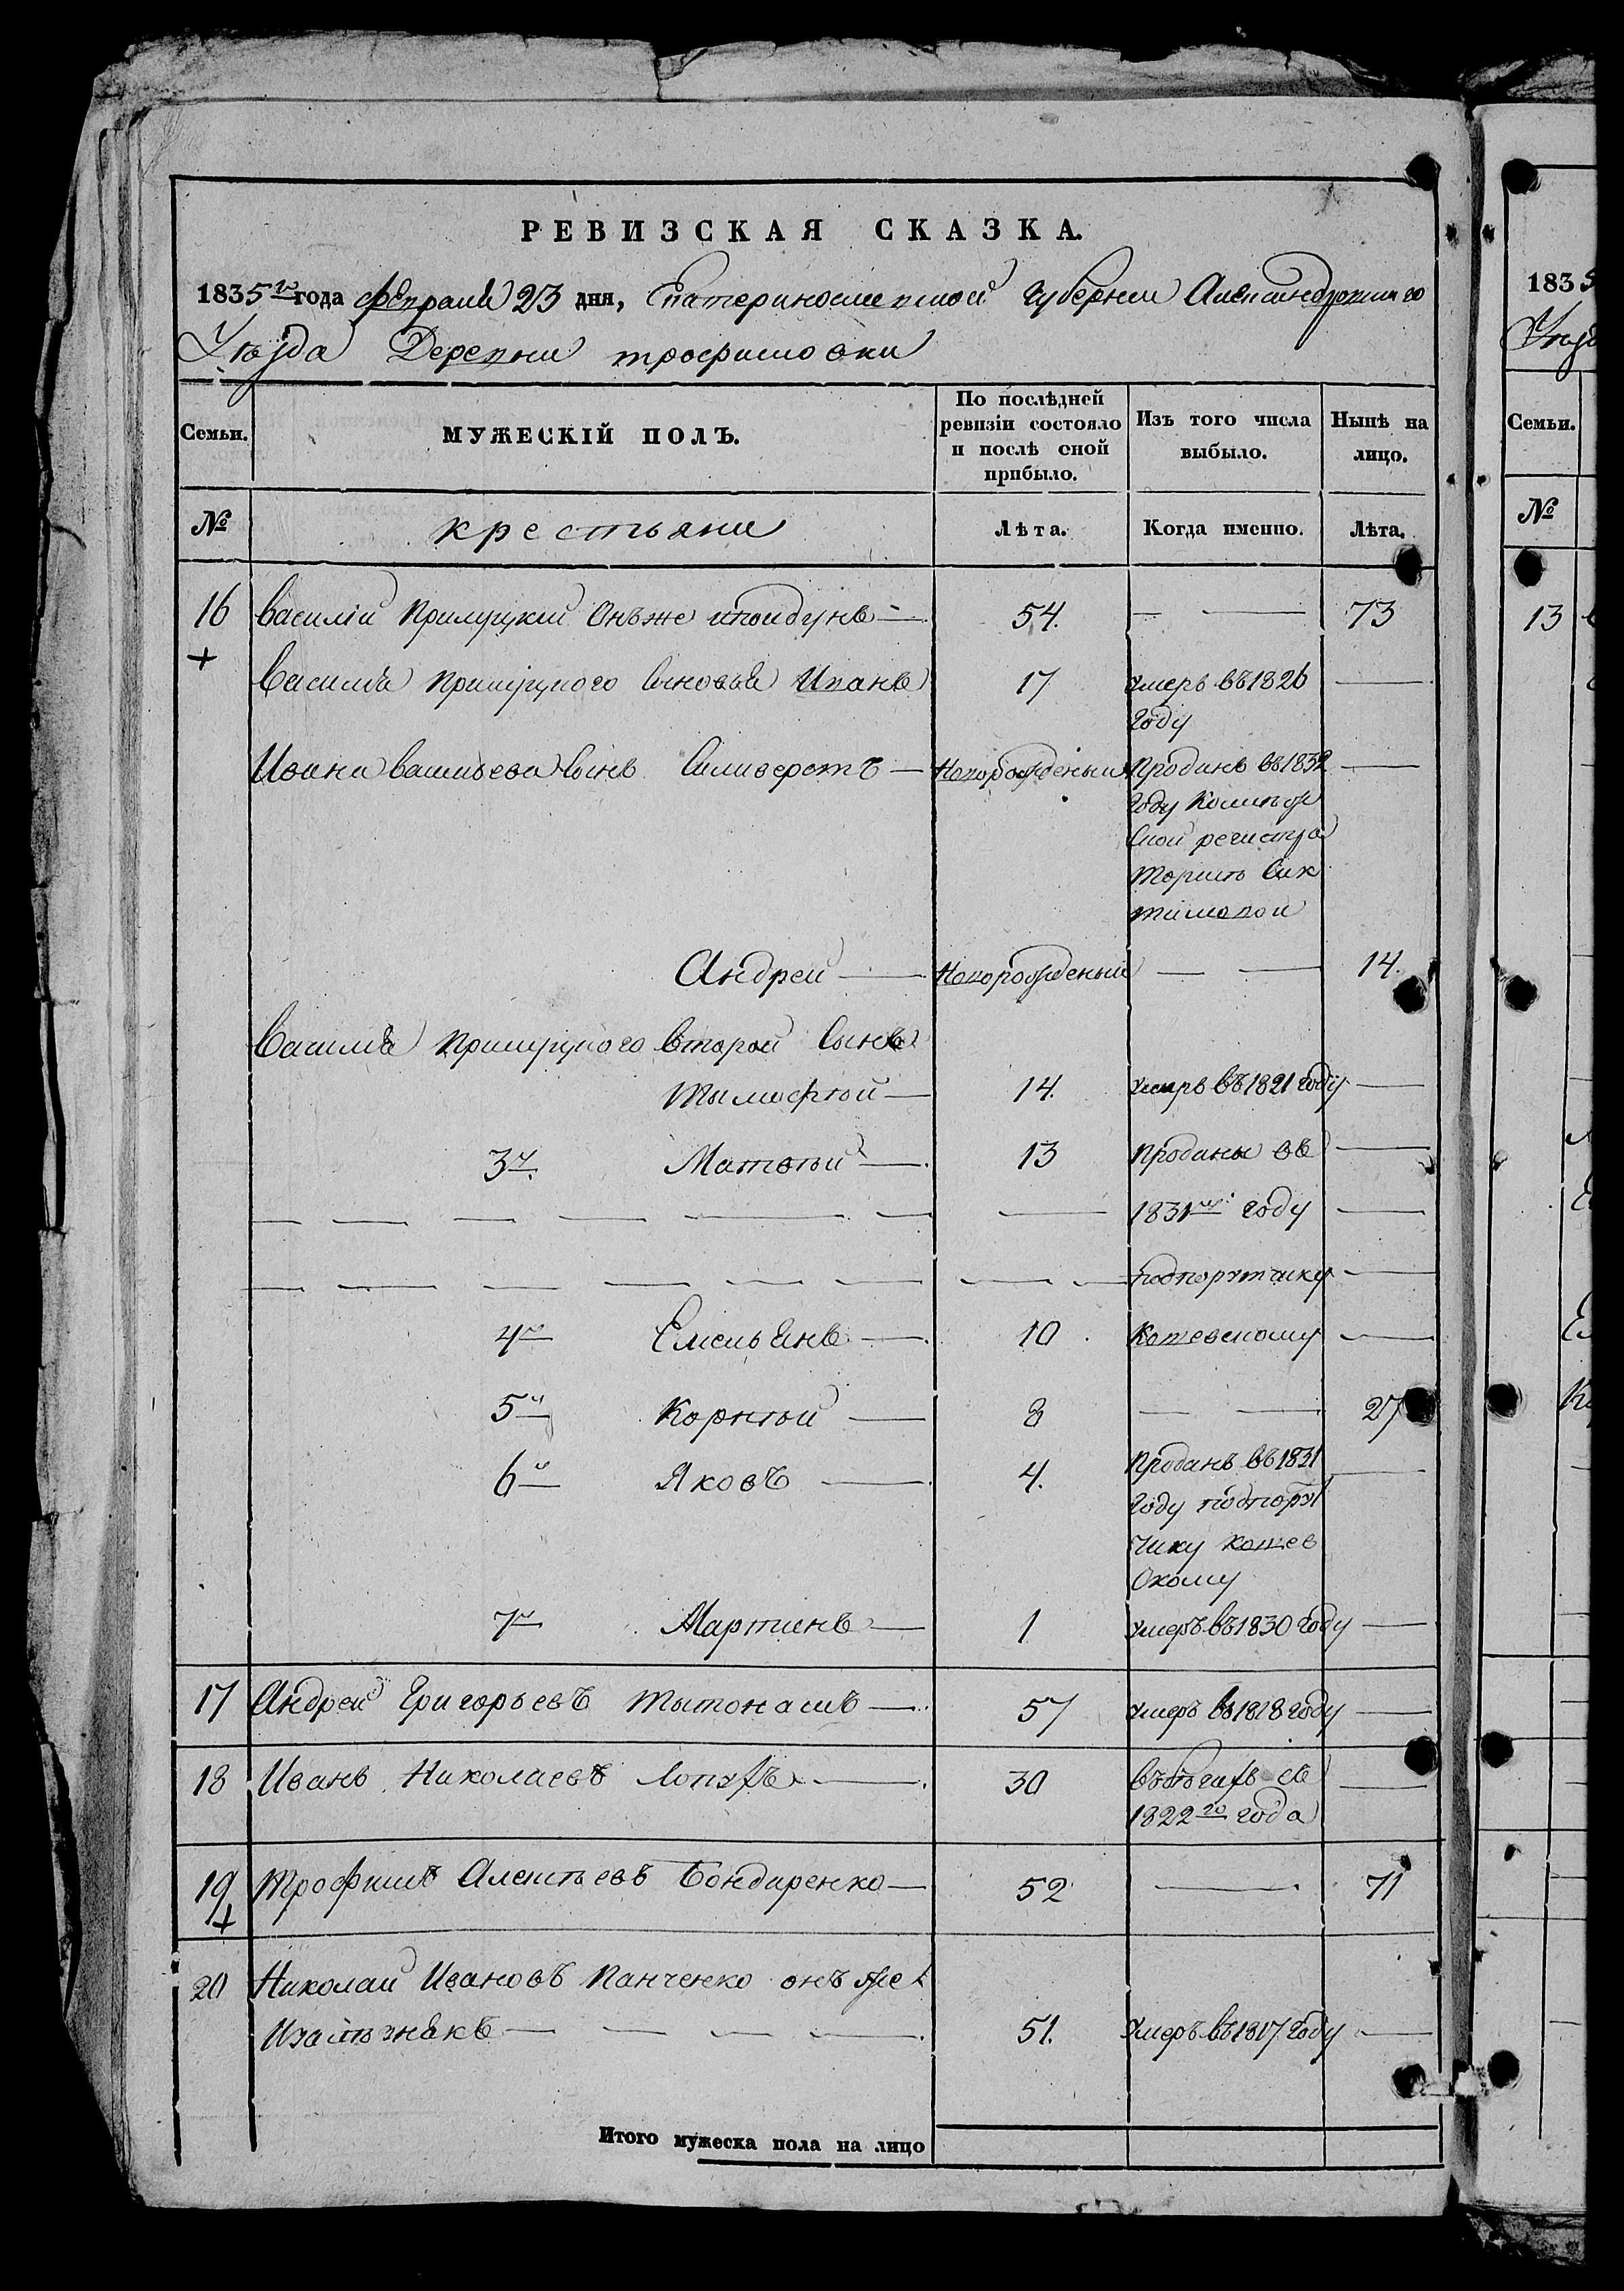 РЕВИЗСКАЯ СКАЗКА.
1835го года февраля 23 дня, Екатеринославской губернии Александровского
Уезда Деревни трофимовки
Семьи. МУЖЕСКІЙ ПОЛЪ. По послѣдней ревизіи состояло и послѣ оной прибыло. Изъ того числа выбыло. Нынѣ на лицо.
№ крестьяне Лѣта. Когда именно. Лѣта.
16 Василій Прилуцкий Онъже — 54. — — 73
Василия прилуцкого сыновья Иванъ 17 умеръ въ 1826 —
году
Ивана васильева сынъ Силиверстъ — Новорожденый Проданъ въ 1832 —
году Колежс
кой регистра
торше Сик
тимовой
Андрей — Новорожденый — — 14.
Василия прилуцкого второй сынъ
тымофей — 14. умеръ въ 1821 году —
3й Матвей — 13 проданы въ —
— — — — — — — — 1831м году —
— — — — — — — — подпорутчику —
4й Емельянъ — 10 Котевскому —
5й Корней — 8 — — 27
6й Яковъ — 4. Проданъ въ 1831 —
году подпорут
чику котев
скому
7й Мартинъ — 1 умеръ въ 1830 году —
17 Андрей Григорьевъ — 57 умеръ въ 1818 году —
18 Иванъ Николаевъ — 30 въ бегахъ съ —
1822го года
19 Трофимъ Алексеевъ Бондаренко — 52 — 71
20 Николай Ивановъ Панченко онъ же
— — — — 51. умеръ въ 1817 году —
Итого мужеска пола на лицо
1835
Уезда
Семьи.
№
13